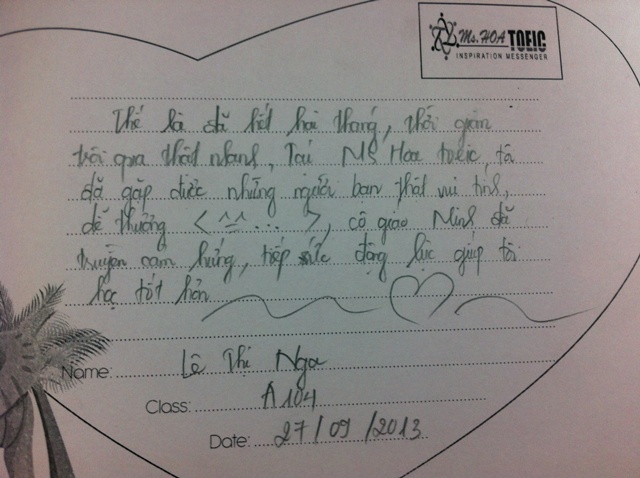 Ms. HOA TOEIC
INSPIRATION MESSENGER
Thế là đã hết hai tháng, thời gian
trôi qua thật nhanh, Tại MS Hoa toeic, tô
đã gặp được những người bạn thật vui tính,
dễ thương < ^=^ ... >, cô giáo Minh đã
truyền cảm hứng, tiếp sức động lực giúp tôi
học tốt hơn
Name: Lê Thị Nga
Class: A104
Date: 27/09/2013